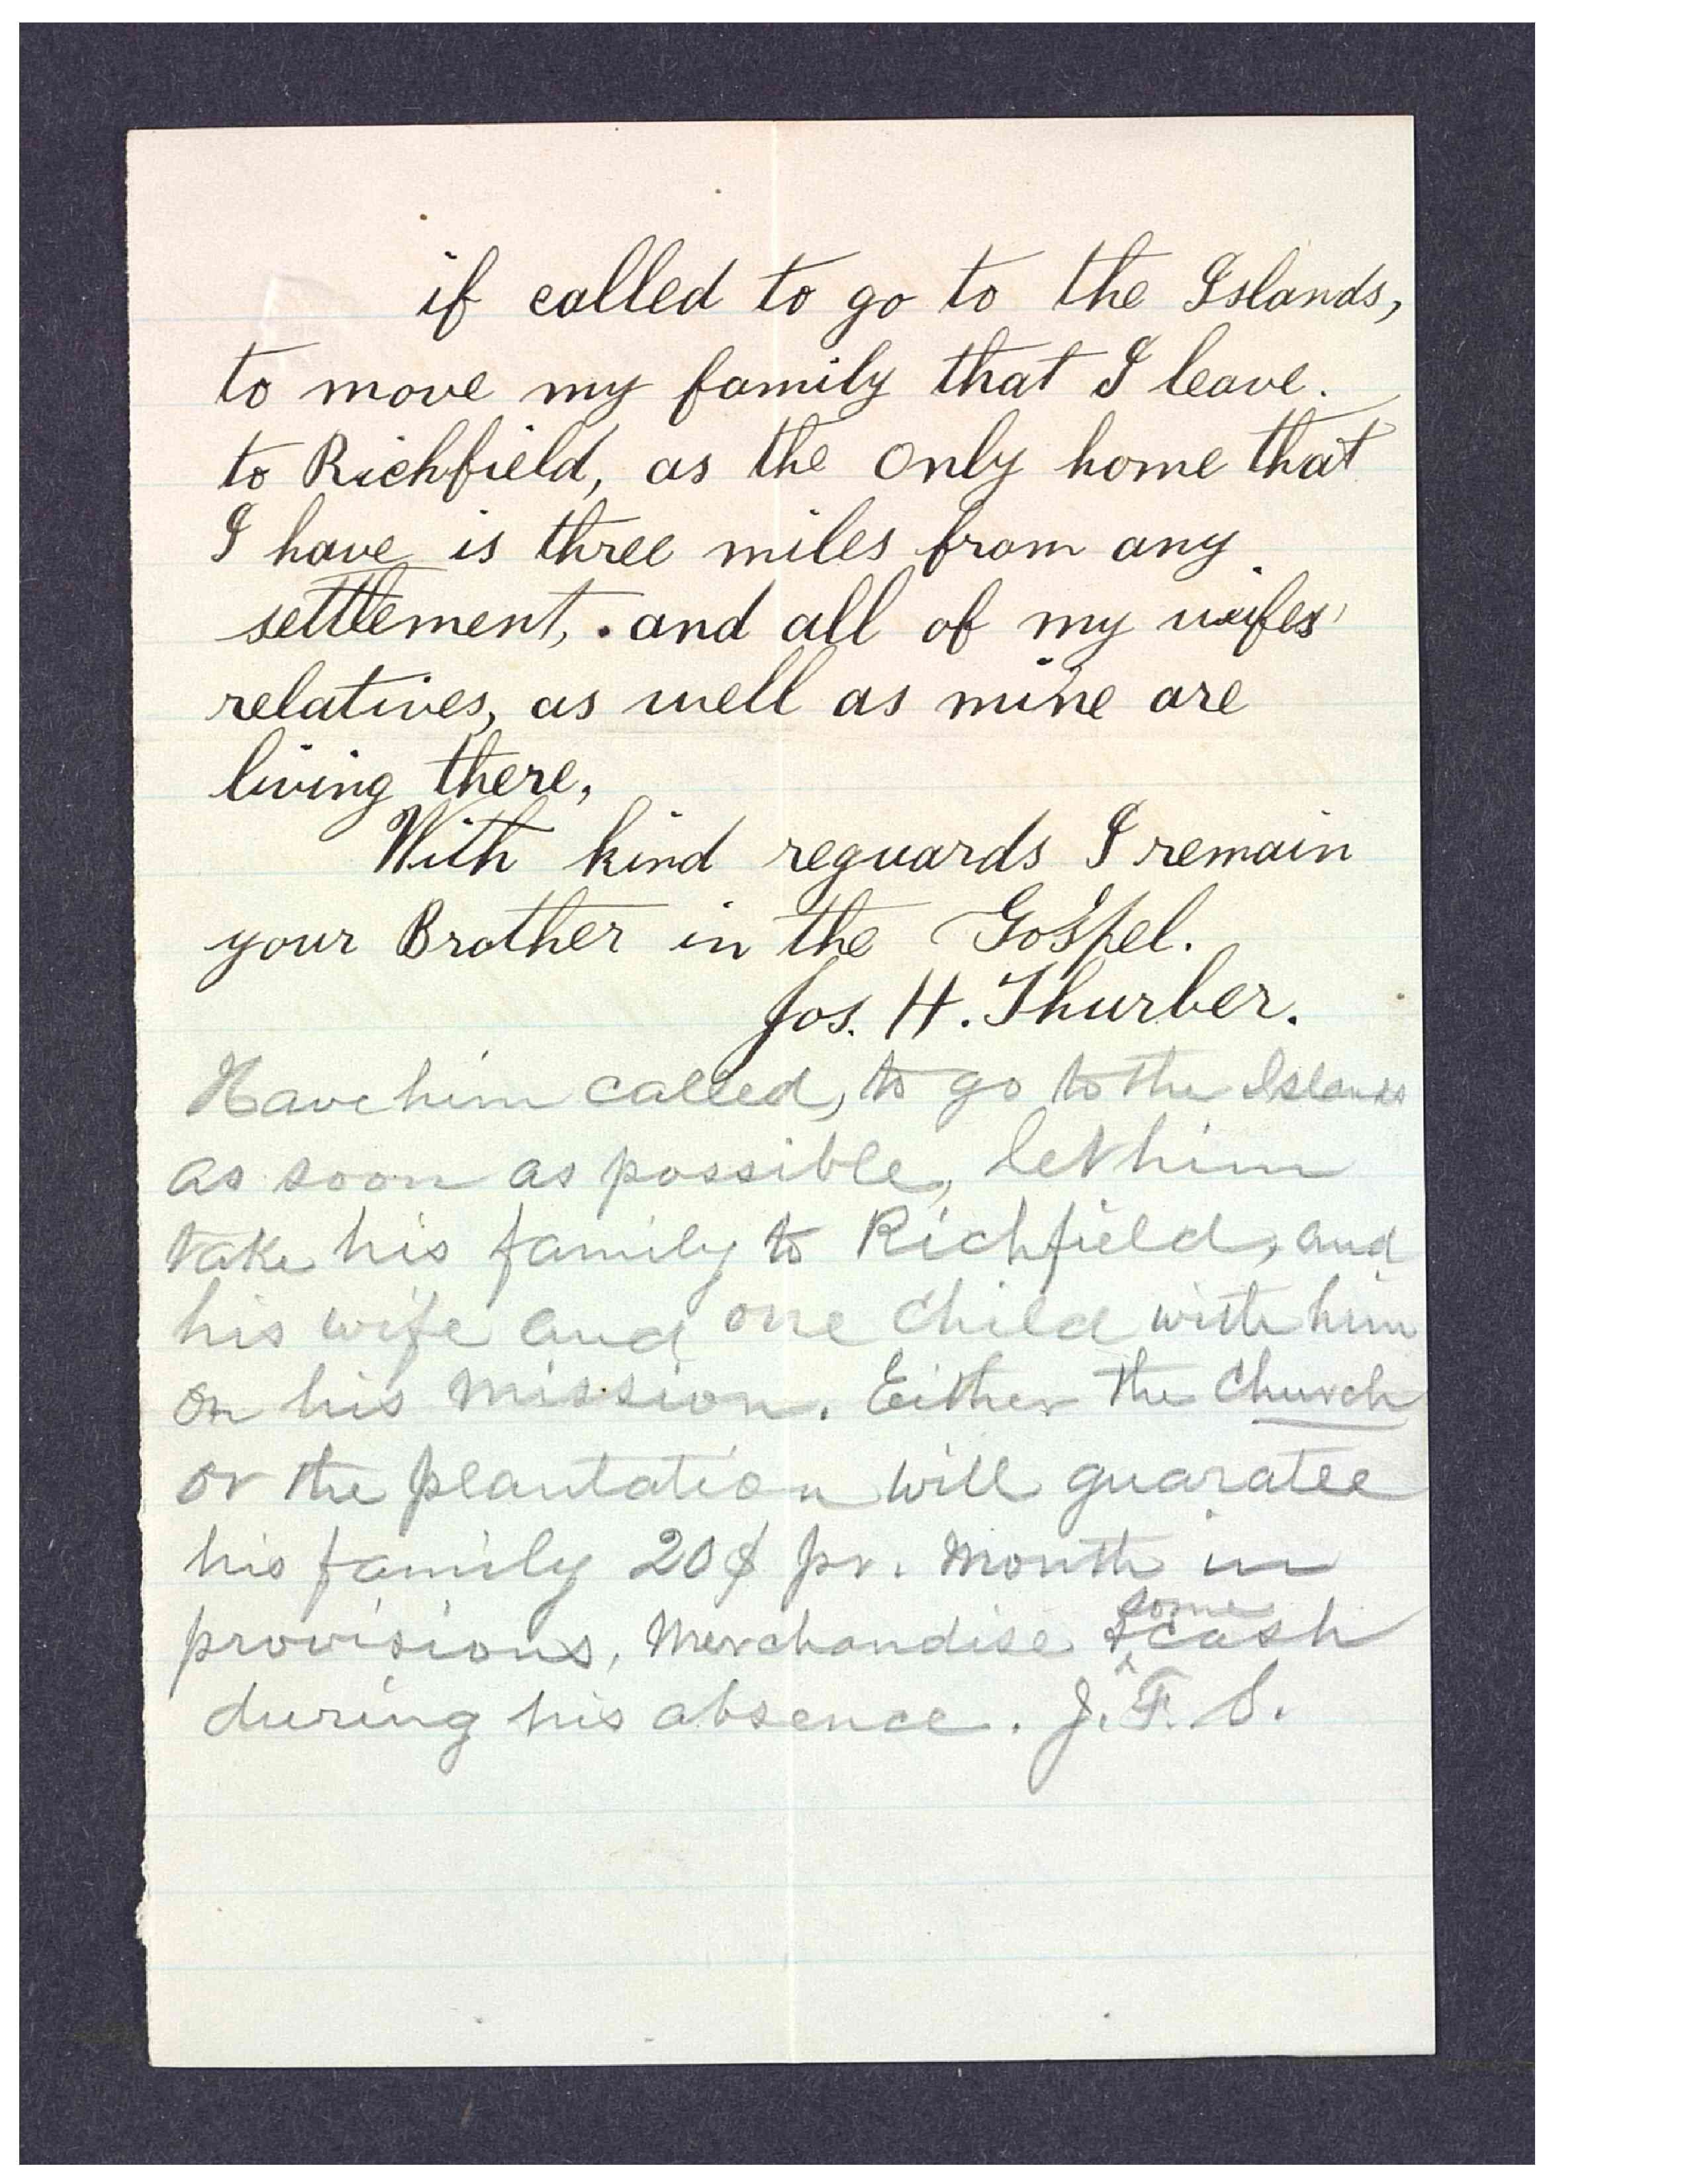 if called to go to the Islands,
to move my family that I leave.
to Richfield, as the only home that
I have is three miles from any
settlement, . and all of my wifes'
relatives, as well as mine are
living there,
With kind reguards I remain
your Brother in the Gospel.
Jos. H. Thurber.
Have him called, to go to the Islands
as soon as possible, let him
take his family to Richfield, and
his wife and one child with him
on his mission. Either the Church
or the plantation will guaratee
his family 20$ pr. Month in
some
provisions, Merchandise & cash
during his absence. J. F. S.